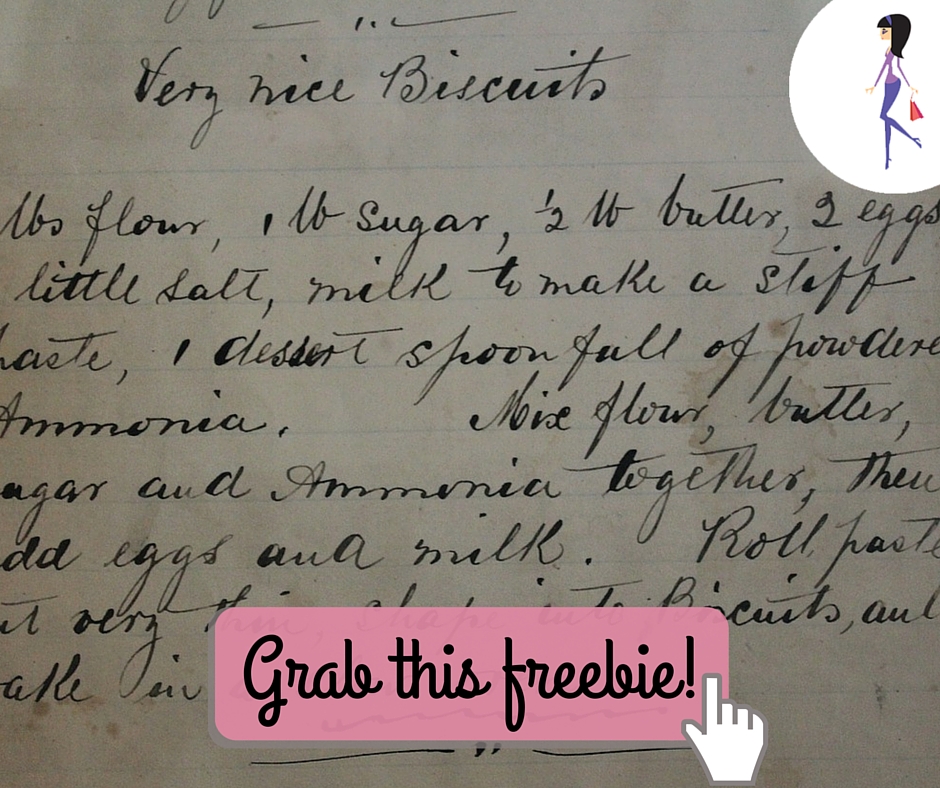 Very nice Biscuits
lbs flour, 1 lb sugar, ½ lb butter, 2 eggs
little salt, milk to make a stiff
paste, 1 dessert spoon full of powdere
Ammonia. Mix flour, butter,
ugar and Ammonia together, then
dd eggs and milk. Roll paste
ut very thin, shape into Biscuits, and
ake in
Grab this freebie!